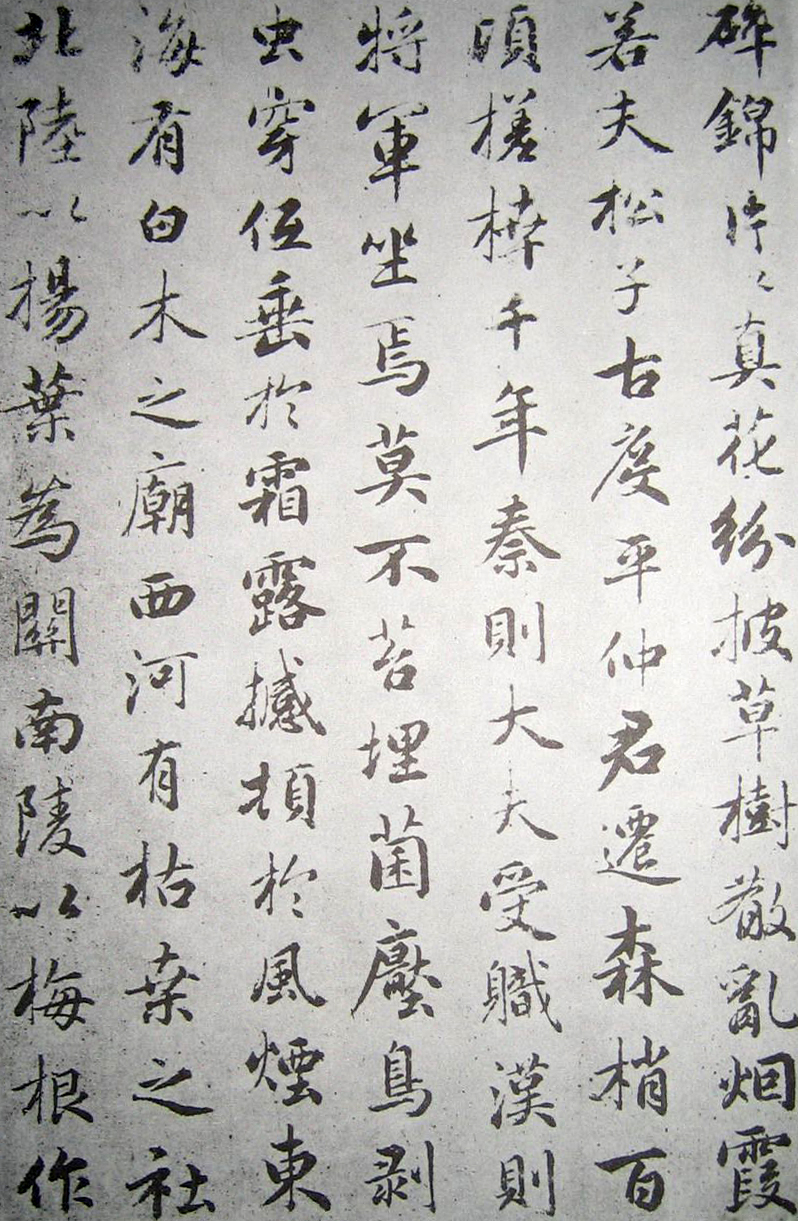 碎錦片〻真花紛披草樹散亂烟霞
若夫松子古度平仲君遷森梢百
頃槎枿千年秦則大夫受職漢則
將軍坐焉莫不苔埋菌壓鳥剥
虫穿低垂於霜露撼頓於風煙東
海有白木之廟西河有枯桒之社
北陸以楊葉為關南陵以梅根作